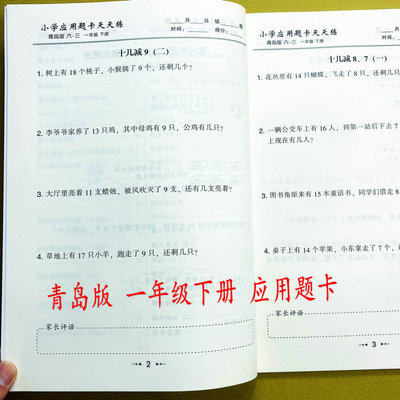 小学应用题卡天天练
青岛版 六·三 一年级 下册
月 日 错
时间: 得分:
十几减 9 (二)
1. 树上有 18 个桃子,小猴摘了 9 个,还剩几个?
2. 李爷爷家养了 13 只鸡,其中母鸡有 9 只,公鸡有几只?
3. 大厅里亮着 11 支蜡烛,被风吹灭了 9 支,还有几支亮着?
4. 草地上有 17 只小羊,跑走了 9 只,还剩几只?
家长评语
2
小学应用题卡天天练
青岛版 六·三 一年级 下册
时间:
十几减 8、7 (一)
1. 花丛里有 14 只蝴蝶,飞走了 8 只,还
2. 一辆公交车上有 16 人,到第一站后下去
上现在有几人?
3. 图书角原来有 15 本童话书,同学们借走
4. 桌子上有 14 个苹果,小东拿走了 7 个,还
家长评语
3
青岛版 一年级下册 应用题卡